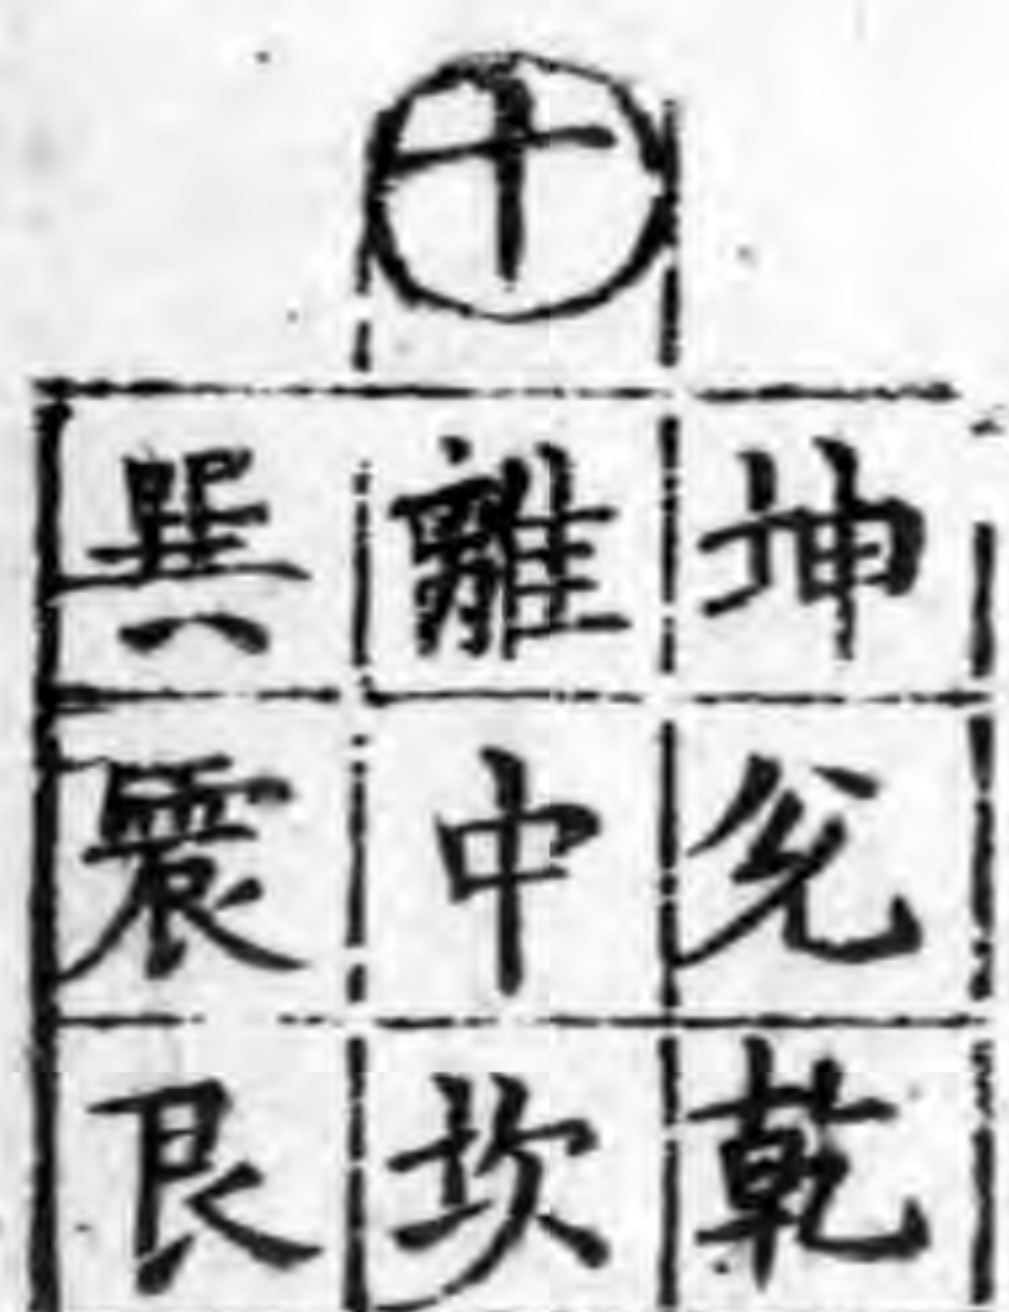 十
巽 離 坤
震 中 兌
艮 坎 乾